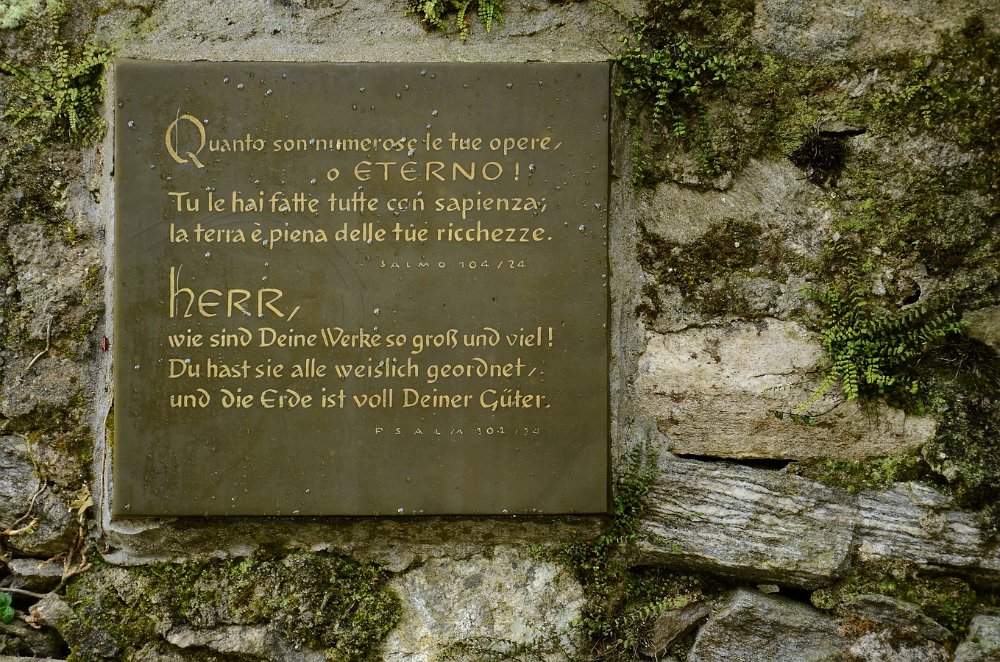 Quanto son numerose le tue opere,
o ETERNO!
Tu le hai fatte tutte con sapienza;
la terra è piena delle tue ricchezze.
SALMO 104/24
HERR,
wie sind Deine Werke so groß und viel!
Du hast sie alle weislich geordnet,
und die Erde ist voll Deiner Güter.
PSALM 104/24